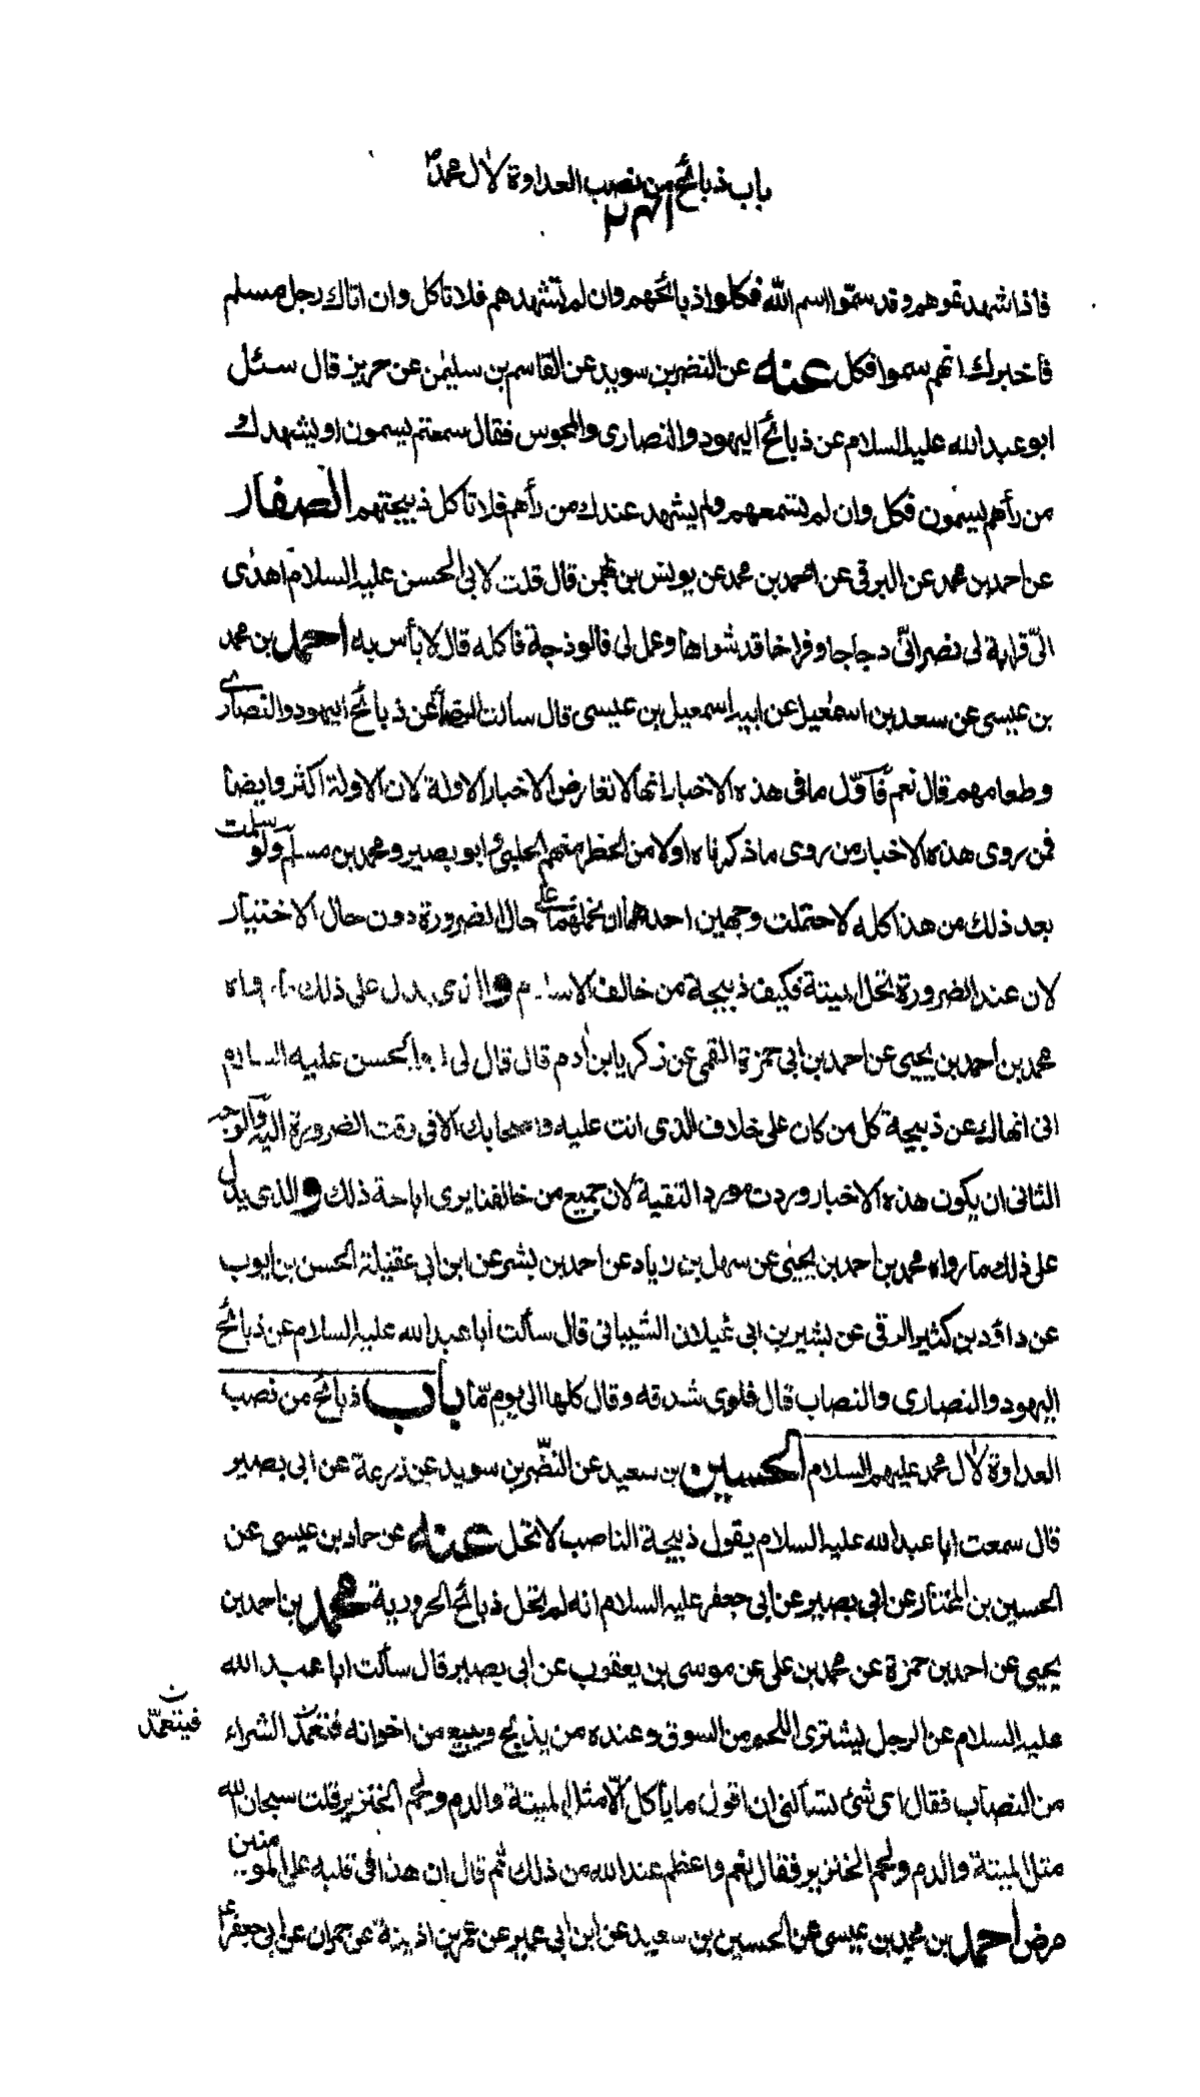 باب ذبائح من نصب العداوة لآل محمد ص
فاذا شهدتموهم وقد سمّوا اسم الله فكلوا ذبائحهم وان لم تشهدهم فلا تاكل وان اتاك رجل مسلم
فاخبرك انهم سموا فكل عنه عن النضر بن سويد عن القاسم بن سليمن عن حريز قال سئل
ابو عبدالله عليه السلام عن ذبائح اليهود والنصارى والمجوس فقال سمعتم يسمون او يشهد لك
من رأهم يسمون فكل وان لم تسمعهم ولم يشهد عندك من رأهم فلا تاكل ذبيحتهم الصفار
عن احمد بن محمد عن البرقى عن احمد بن محمد عن يونس بن بهمن قال قلت لابى الحسن عليه السلام اهدى
الىّ قرابة لى نصرانىّ دجاجا وفراخا قد شواها وعمل لى فالوذجة فاكله قال لا بأس به احمد بن محمد
بن عيسى عن سعد بن اسمعيل عن ابيه اسمعيل بن عيسى قال سالت الرضا ع عن ذبائح اليهود والنصارى
وطعامهم قال نعم فأوّل ما فى هذه الاخبار انها لا تعارض الاخبار الاولة لان الاولة اكثر وايضا
فمن روى هذه الاخبار من روى ما ذكرناه اولا من الحظر منهم الحلبى وابو بصير ومحمد بن مسلم ولو سلمت
بعد ذلك من هذا كله لاحتملت وجهين احدهما ان نحملها على حال الضرورة دون حال الاختيار
لان عند الضرورة تحل الميتة فكيف ذبيحة من خالف الاسلام والذى يدل على ذلك ما رواه
محمد بن احمد بن يحيى عن احمد بن ابى حمزة القمى عن زكريا بن أدم قال قال لى ابو الحسن عليه السلام
انى انهاك عن ذبيحة كل من كان على خلاف الذى انت عليه واصحابك الا فى وقت الضرورة اليه والوجه
الثانى ان يكون هذه الاخبار وردت مورد التقية لان جميع من خالفنا يرى اباحة ذلك والذى يدل
على ذلك ما رواه محمد بن احمد بن يحيى عن سهل بن زياد عن احمد بن بشر عن ابن ابى عقيلة الحسن بن ايوب
عن داود بن كثير الرقى عن بشير بن ابى غيلان الشيبانى قال سألت أبا عبدالله عليه السلام عن ذبائح
اليهود والنصارى والنصاب قال فلوى شدقه وقال كلها الى يوم مّا باب ذبائح من نصب
العداوة لآل محمد عليهم السلام الحسين بن سعيد عن النضر بن سويد عن زرعة عن ابى بصير
قال سمعت ابا عبدالله عليه السلام يقول ذبيحة الناصب لا تحل عنه عن حماد بن عيسى عن
الحسين بن المختار عن ابى بصير عن ابى جعفر عليه السلام انه لم تحل ذبائح الحرورية محمد بن احمد بن
يحيى عن احمد بن حمزة عن محمد بن على عن موسى بن يعقوب عن ابى بصير قال سألت ابا عبدالله
عليه السلام عن الرجل يشترى اللحم من السوق وعنده من يذبح ويبيع من اخوانه فتعمّد الشراء
فيتعمّد ن
من النصاب فقال اى شئ تسألنى ان اقول ما يأكل الّا مثل الميتة والدم ولحم الخنزير قلت سبحان الله
مثل الميتة والدم ولحم الخنزير فقال نعم واعظم عند الله من ذلك ثم قال ان هذا فى قلبه على المومنين
مرض احمد بن محمد بن عيسى عن الحسين بن سعيد عن ابن ابى عمير عن عمر بن اذينة عن حمران عن ابى جعفر ع